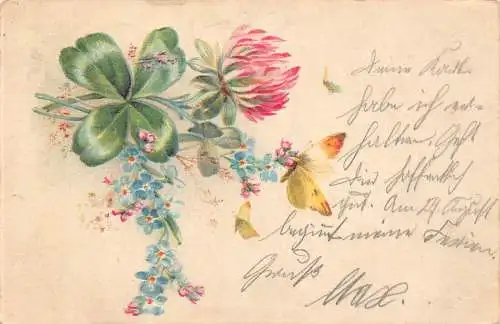 Deine Karte
habe ich er-
halten. Geht
Dir hoffentlich
gut. Am 29 August
beginnt meine Ferien.
Gruß
Max.